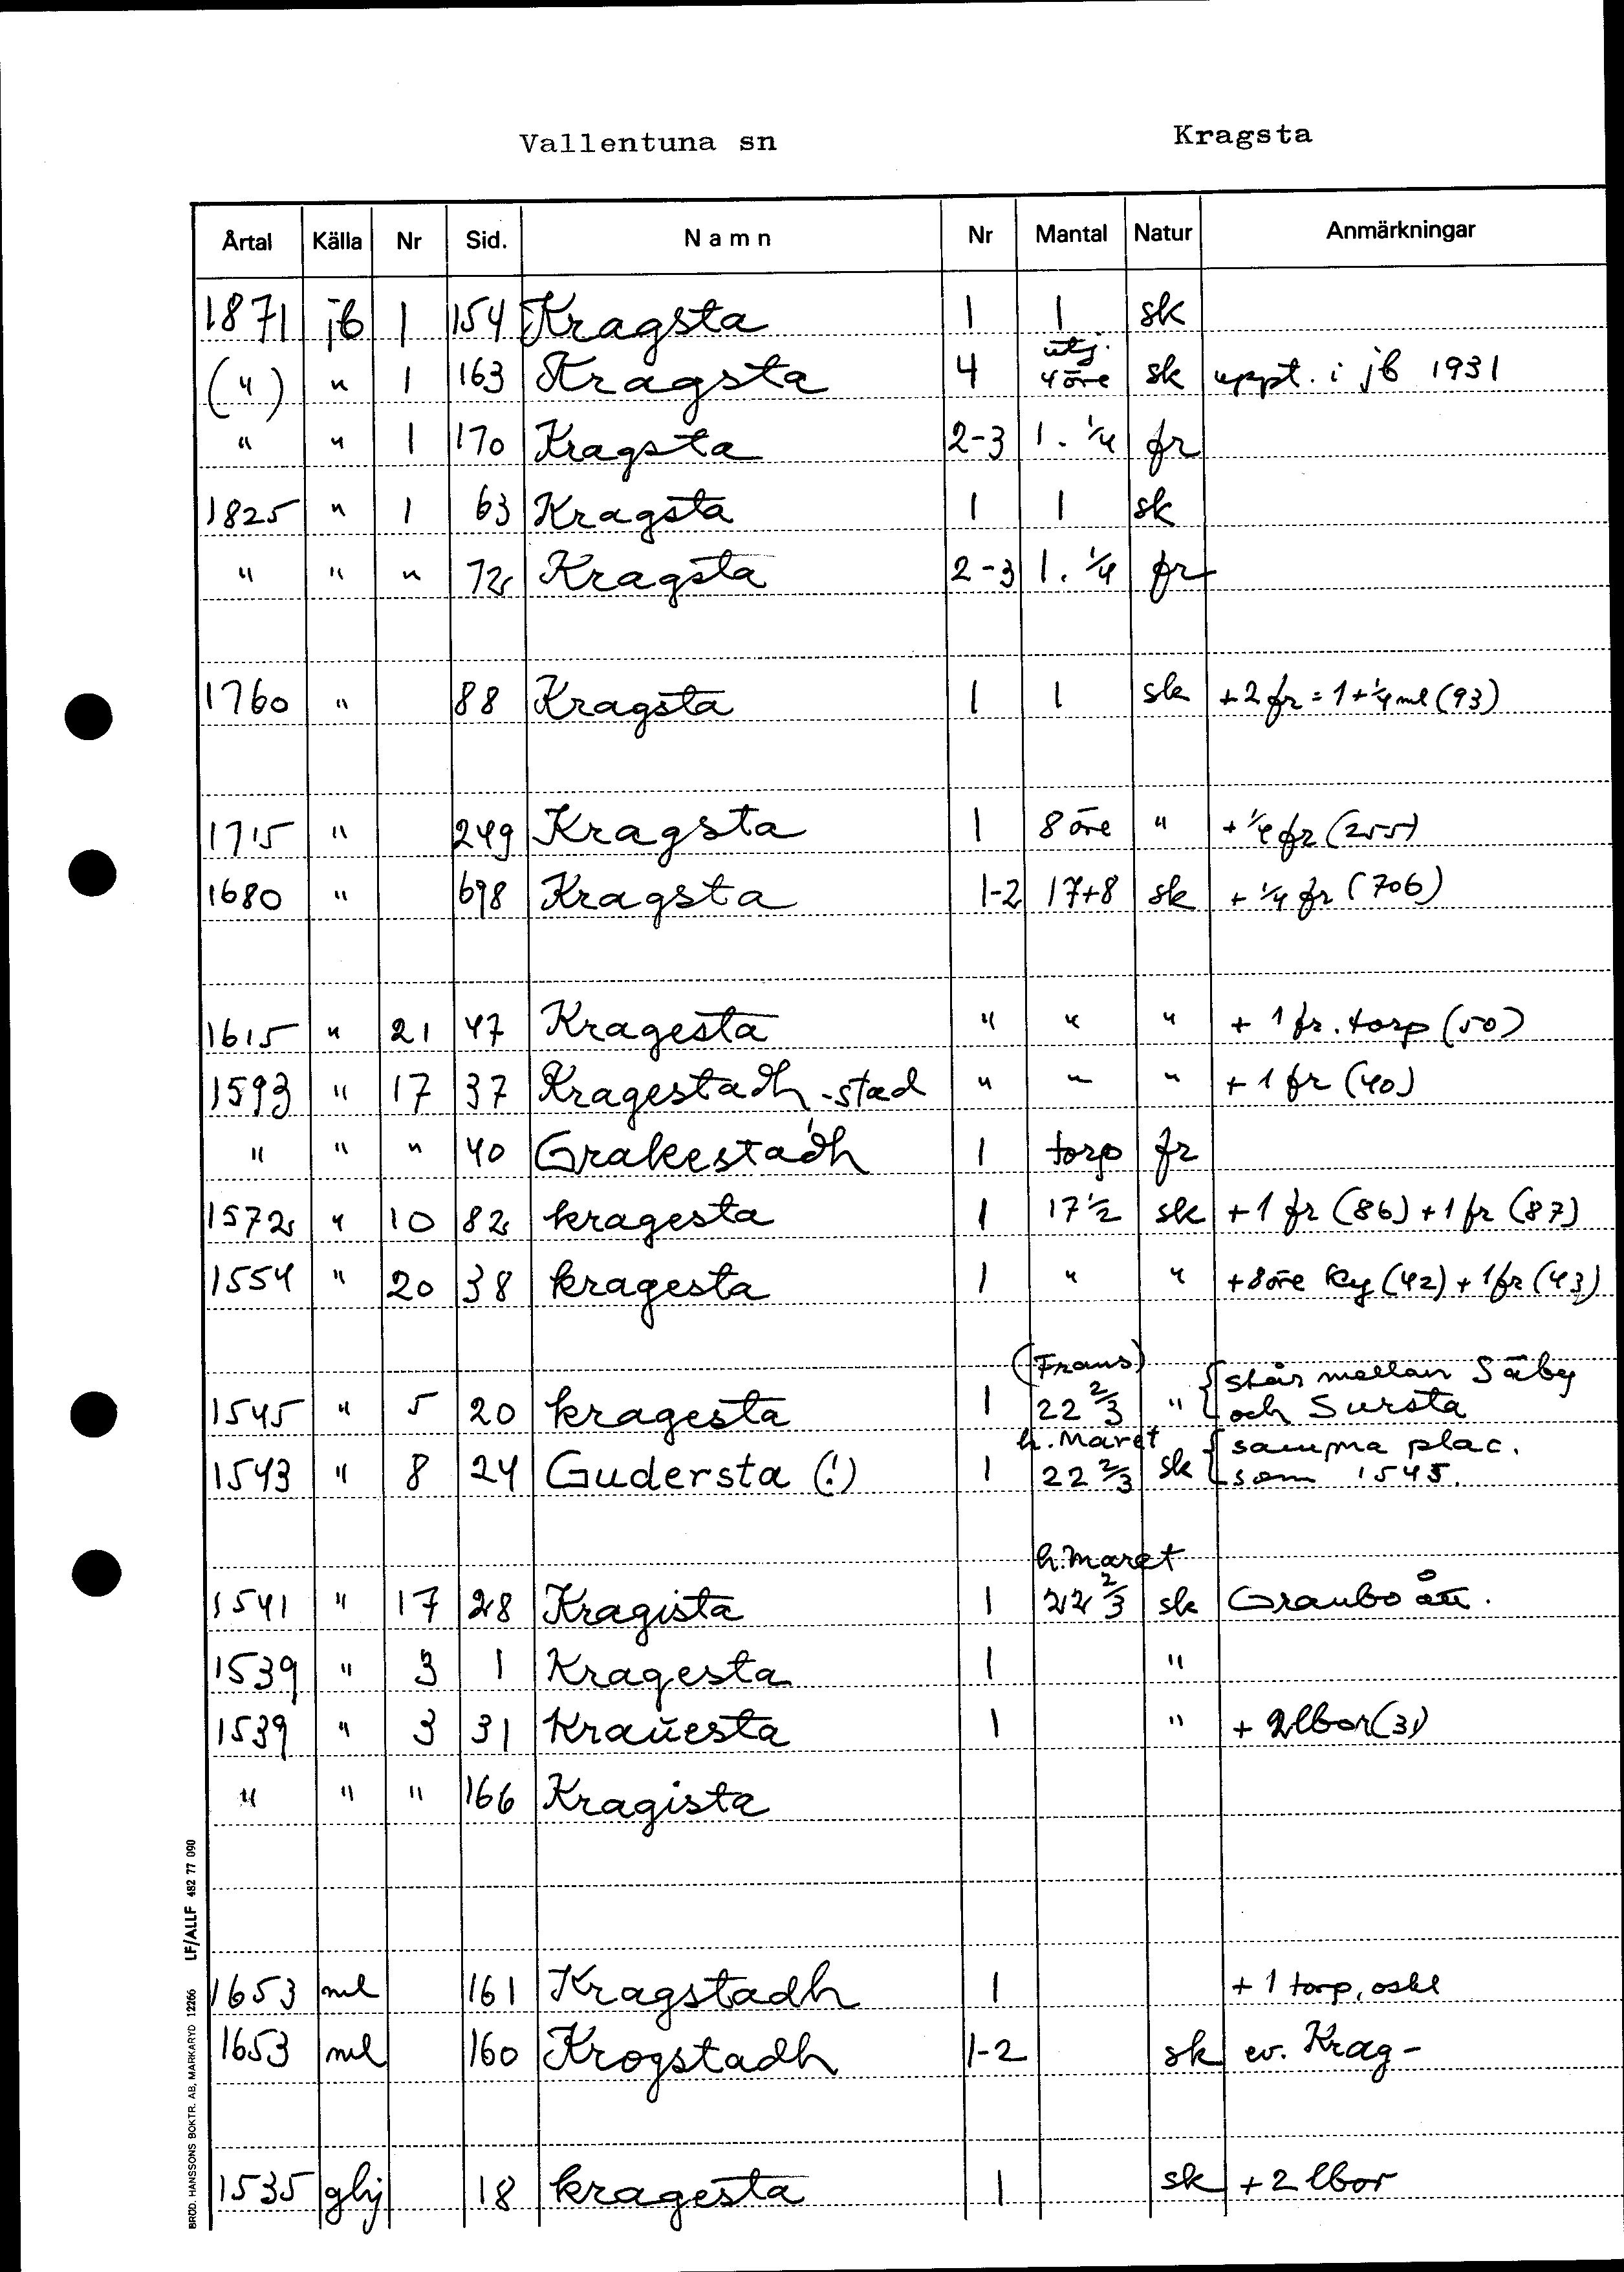 Vallentuna sn Kragsta
Årtal Källa Nr Sid. Namn Nr Mantal Natur Anmärkningar
1871 jb 1 154 Kragsta 1 1 sk
utj.
(") " 1 163 Kragsta 4 4 öre sk uppt. i jb 1931
" " 1 170 Kragsta 2-3 1. 1/4 fr
1825 " 1 63 Kragsta 1 1 sk
" " " 72 Kragsta 2-3 1. 1/4 fr
1760 " 88 Kragsta 1 1 sk +2 fr = 1 + 1/4 ml (93)
1715 " 249 Kragsta 1 8 öre " + 1/4 fr (255)
1680 " 698 Kragsta 1-2 17+8 sk + 1/4 fr (706)
1615 " 21 47 Kragesta " " " + 1 fr. torp (50)
1593 " 17 37 Kragestadh, -stad " " " + 1 fr (40)
" " " 40 Grakestadh 1 torp fr
1572 " 10 82 kragesta 1 17 1/2 sk + 1 fr (86) + 1 fr (87)
1554 " 20 38 kragesta 1 " " + 8 öre ky (42) + 1 fr (43)
(Frans) { står mellan Säby
1545 " 5 20 kragesta 1 22 2/3 " och Sursta
h. Maret { samma plac.
1543 " 8 24 Gudersta (!) 1 22 2/3 sk som 1545.
h. maret
1541 " 17 28 Kragista 1 22 2/3 sk Graubo ått.
1539 " 3 1 Kragesta 1 "
1539 " 3 31 Kraŭesta 1 " + 2 lbor (31)
" " " 166 Kragista
1653 ml 161 Kragstadh 1 + 1 torp, oskl
1653 ml 160 Krogstadh 1-2 sk ev. Krag-
1535 ghj 18 kragesta 1 sk + 2 lbor
BRÖD. HANSSONS BOKTR. AB, MARKARYD 12266 LF/ALLF 482 77 090